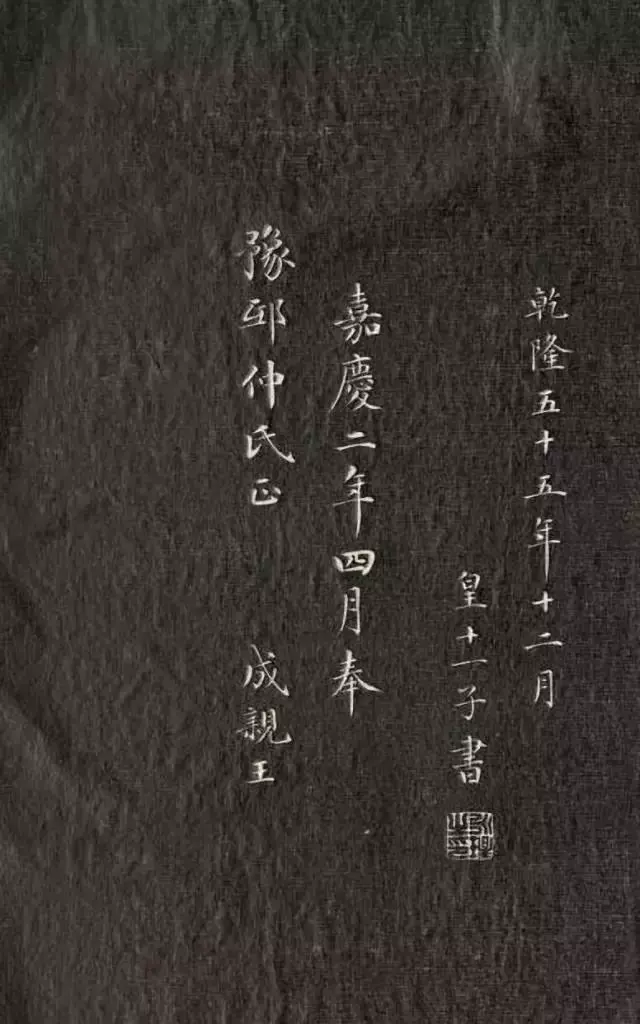 乾隆五十五年十二月
皇十一子書
永瑆之印
嘉慶二年四月奉
豫邨仲氏正 成親王